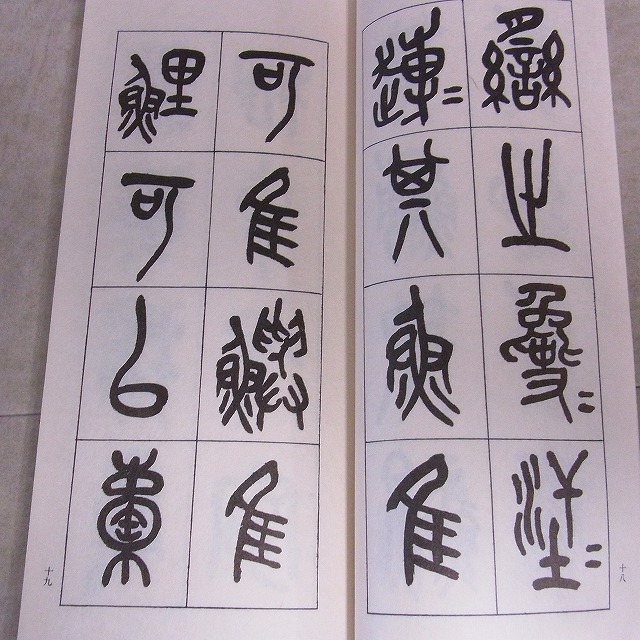 臠之
其魚隹
可隹鱮隹
鯉可㠯橐
十八
十九